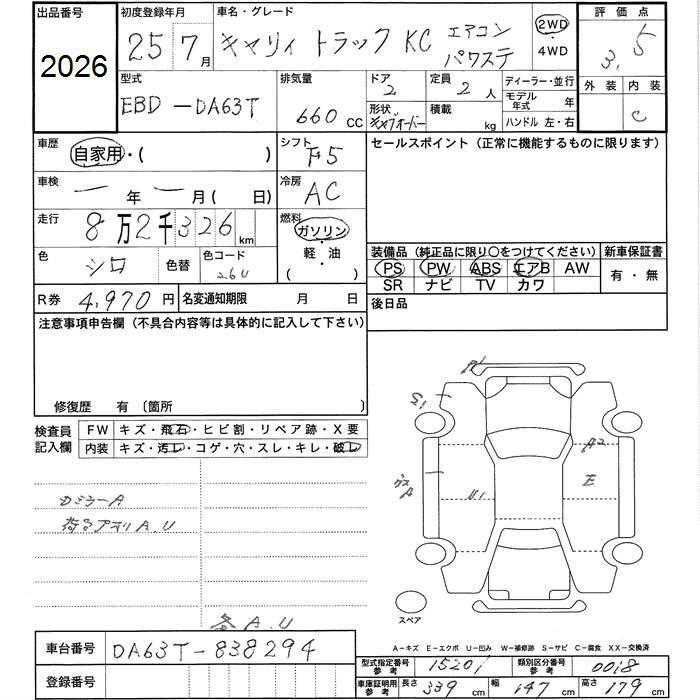 出品番号 初度登録年月 車名・グレード 評価点
2026 25年7月 キャリィ トラック KC エアコン パワステ 2WD ・4WD 3.5
型式 排気量 ドア 定員 ディーラー・並行 外装 内装
EBD-DA63T 660CC 2 2人 モデル年式 年 C
形状 キャブオーバー 積載 kg ハンドル 左・右
車歴 自家用・( ) シフト F5 セールスポイント(正常に機能するものに限ります)
車検 ー年ー月(ー日) 冷房 AC
走行 8万2千326km 燃料 ガソリン・軽・油( )
色 シロ 色替 色コード 26U
装備品(純正品に限り○をつけてください) 新車保証書
PS PW ABS エアB AW 有・無
SR ナビ TV カワ
R券 4,970円 名変通知期限 月 日 後日品
注意事項申告欄(不具合内容等は具体的に記入して下さい)
修復歴 有 〔箇所
検査員記入欄 FW キズ・飛石・ヒビ割・リペア跡・X要
内装 キズ・汚レ・コゲ・穴・スレ・キレ・破レ
S1
A2
E
U1
A
ミラーA
A.U
A.U
スペア
A-キズ E-エクボ U-凹み W-補修跡 S-サビ C-腐食 XX-交換済
車台番号 DA63T-838294
登録番号
型式指定番号参考 15201 類別区分番号参考 0018
車庫証明用参考 長さ 339cm 幅 147cm 高さ 179cm